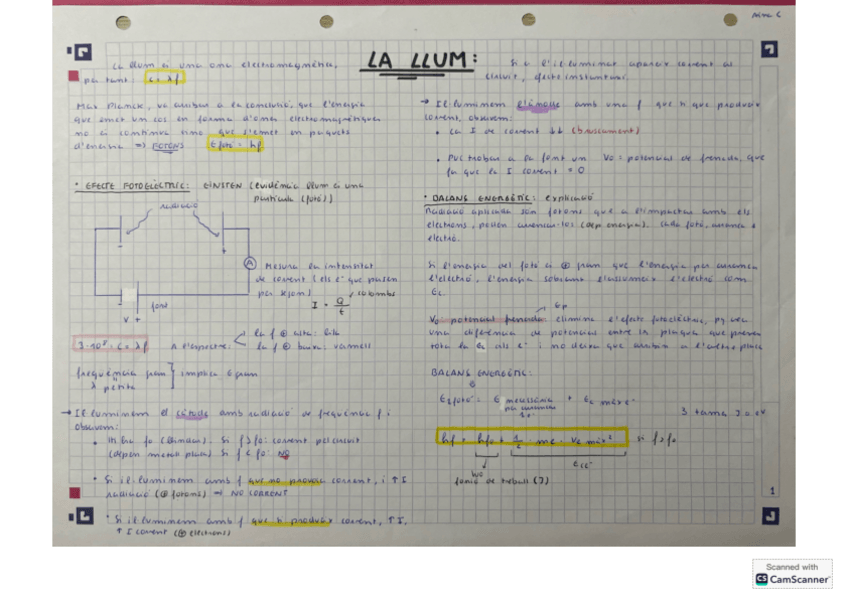 LA LLUM:
La llum és una ona electromagnètica,
per tant: c = λf
Max Planck, va arribar a la conclusió, que l'energia
que emet un cos en forma d'ones electromagnètiques
no és contínua sino que s'emet en paquets
d'energia => FOTONS E fotó = hf
• EFECTE FOTOELÈCTRIC: EINSTEN (evidència llum és una
partícula (fotó))
RADIACIÓ
A
Mesura la intensitat
de corrent (els e- que passen
per segon)
I = Q/t
coulombs
font
V +
3·10⁸ = c = λf
A l'espectre:
la f ⊕ alta: lila
la f ⊕ baixa: vermell
freqüència gran
λ petita
implica E gran
→ Il·luminem el càtode amb radiació de freqüència f i
observem:
• Hi ha fo (llindar). Si f>fo: corrent pel circuit
(depen metall placa) Si f < fo: NO
• Si il·luminem amb f que no provoca corrent, i ↑ I
radiació (⊕ fotons) => NO CORRENT
• Si il·luminem amb f que hi produeix corrent, ↑I,
↑ I corrent (⊕ electrons)
Si a l'il·luminar apareix corrent al
circuit, efecte instantani.
→ Il·luminem l'ànode amb una f que hi que produeix
corrent, observem:
• La I de corrent ↓↓ (bruscament)
• Puc trobar a la font un Vo: potencial de frenada, que
fa que la I corrent = 0
• BALANS ENERGÈTIC: explicació
Radiació aplicada són fotons que a l'impactar amb els
electrons, poden arrencar-los (dep energia). Cada fotó, arrenca 1
electró.
Si l'energia del fotó és ⊕ gran que l'energia per arrencar
l'electró, l'energia sobrant l'assumeix l'electró com
Ec.
Ep
Vo potencial frenador elimina l'efecte fotoelèctric, pq crea
una diferència de potencial entre les plaques que frena
tota la Ec als e- i no deixa que arribin a l'altra placa
BALANS ENERGÈTIC:
E fotó = E necessària + Ec màx e-
per arrencar
hf = hfo + 1/2 · me · ve màx² si f>fo
Wo
Ec e-
funció de treball (J)
1